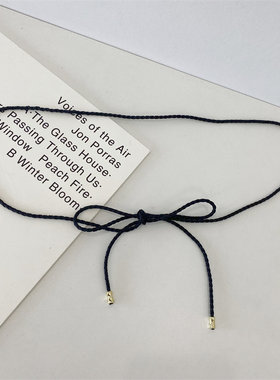 Voices of the Air
Jon Porras
The Glass House·
Passing Through Us·
Window Peach Fire·
B Winter Bloom